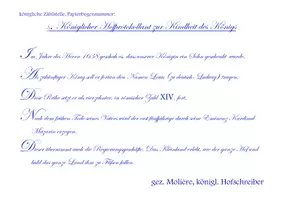 königliche Zählstelle, Papierbogennummer:
5. Königlicher Hofprotokollant zur Kindheit des Königs
Im Jahre des Herrn 1638 geschah es, dass unserer Königin ein Sohn geschenkt wurde.
Als zukünftiger König soll er fortan den Namen Louis (zu deutsch: Ludwig) tragen.
Diese Reihe setzt er als vierzehnter, in römischer Zahl XIV, fort.
Nach dem frühen Tode seines Vaters wird der erst fünfjährige durch seine Eminenz Kardinal
Mazarin erzogen.
Dieser übernimmt auch die Regierungsgeschäfte. Das Kleinkind erlebt, wie der ganze Hof und
bald das ganze Land ihm zu Füßen fallen.
gez. Molière, königl. Hofschreiber